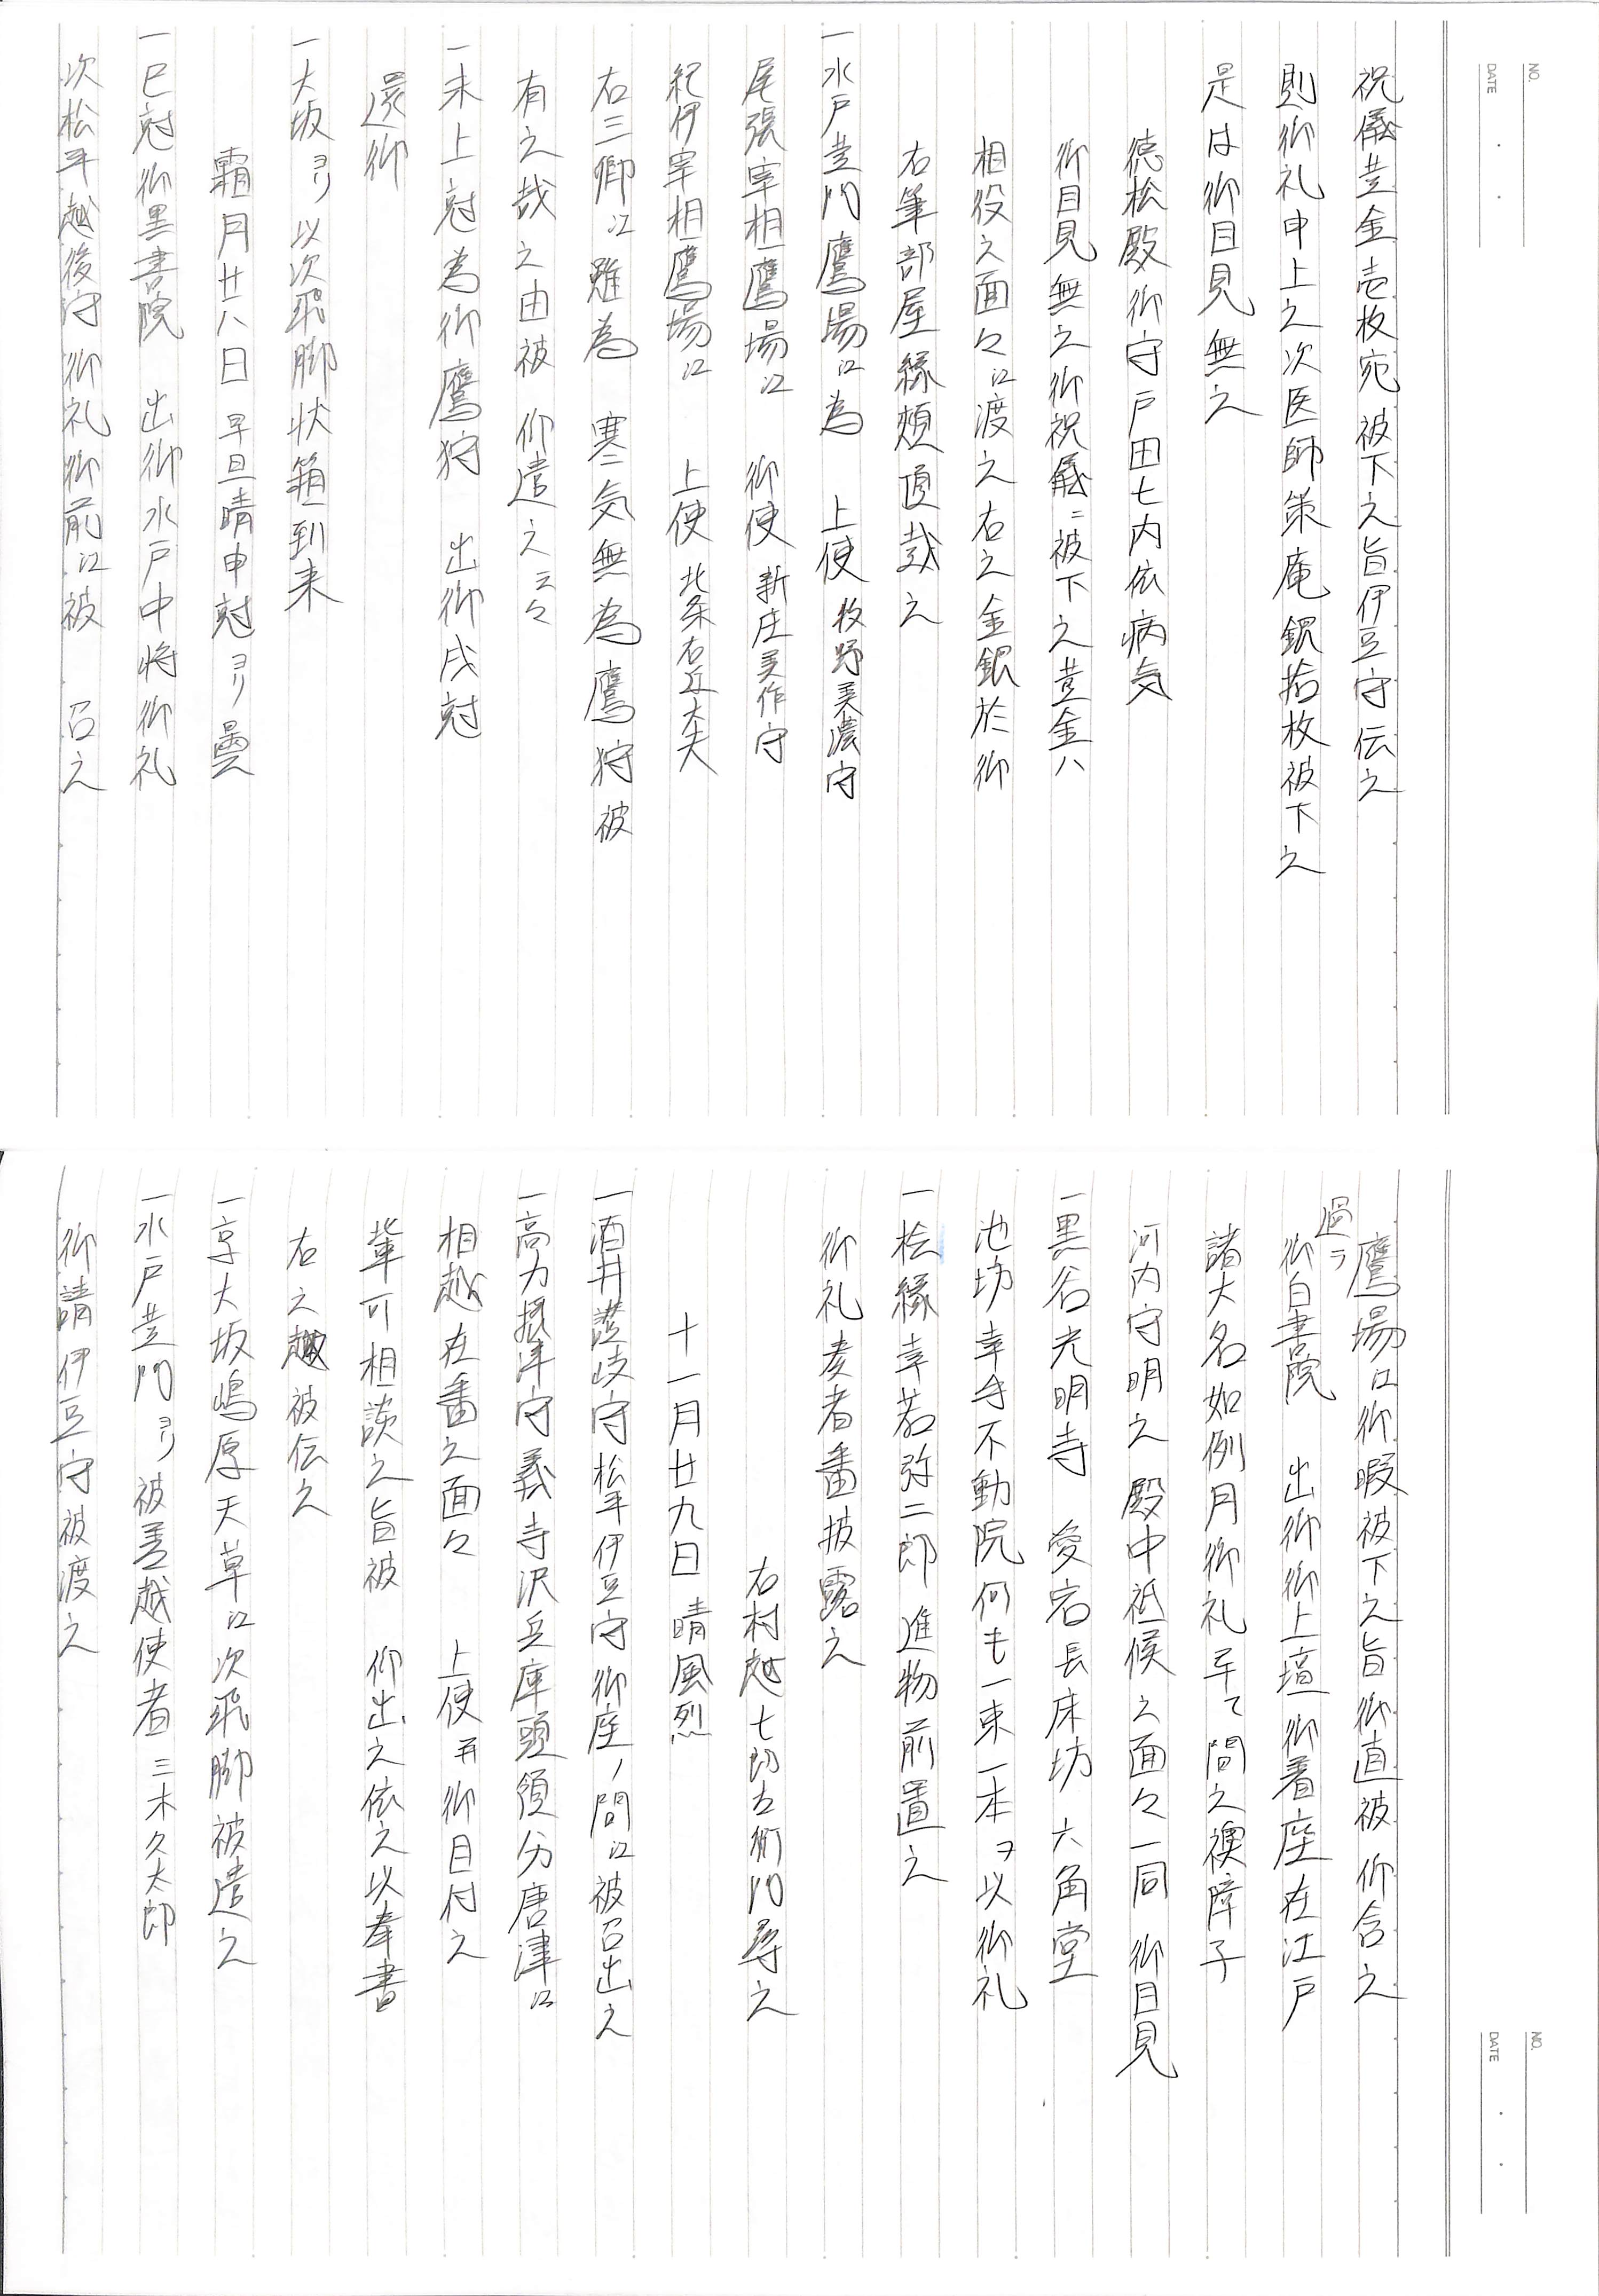 NO.
DATE
祝儀黄金壱枚宛被下之旨伊豆守伝之
則御礼申上之次医師策庵銀拾枚被下之
是は御目見無之
徳松殿御守戸田七内依病気
御目見無之御祝儀ニ被下之黄金ハ
相役之面々江渡之右之金銀於御
右筆部屋縁頬直戴之
一水戸黄門鷹場江為 上使 牧野美濃守
尾張宰相鷹場江 御使 新庄美作守
紀伊宰相鷹場江 上使 北条右近大夫
右三卿江雖為 寒気無為鷹狩被
有之哉之由被 仰遣之云々
一未上尅為御鷹狩 出御戌尅
還御
一大坂ヨリ以次飛脚状箱到来
霜月廿八日 早旦晴申尅ヨリ曇
一巳尅御黒書院 出御水戸中将御礼
次松平越後守御礼御前江被 召之
NO.
DATE
鷹場江御暇被下之旨御直被 仰含之
過ヲ
御白書院 出御御上壇御着座在江戸
諸大名如例月御礼早て間之襖障子
河内守明之 殿中祗候之面々一同 御目見
一黒谷光明寺 愛宕長床坊 六角堂
池坊 幸手不動院何も一束一本ヲ以御礼
一桧縁幸若弥二郎 進物前置之
御礼奏者番披露之
右村越七郎左衛門尋之
十一月廿九日 晴風烈
一酒井讃岐守松平伊豆守御座ノ間江被召出之
一高力摂津守義寺沢兵庫頭領分唐津江
相越在番之面々 上使并御目付之
輩可相談之旨被 仰出之依之以奉書
右之趣被伝之
一京大坂嶋原天草江次飛脚被遣之
一水戸黄門ヨリ被差越使者 三木久太郎
御請伊豆守被渡之